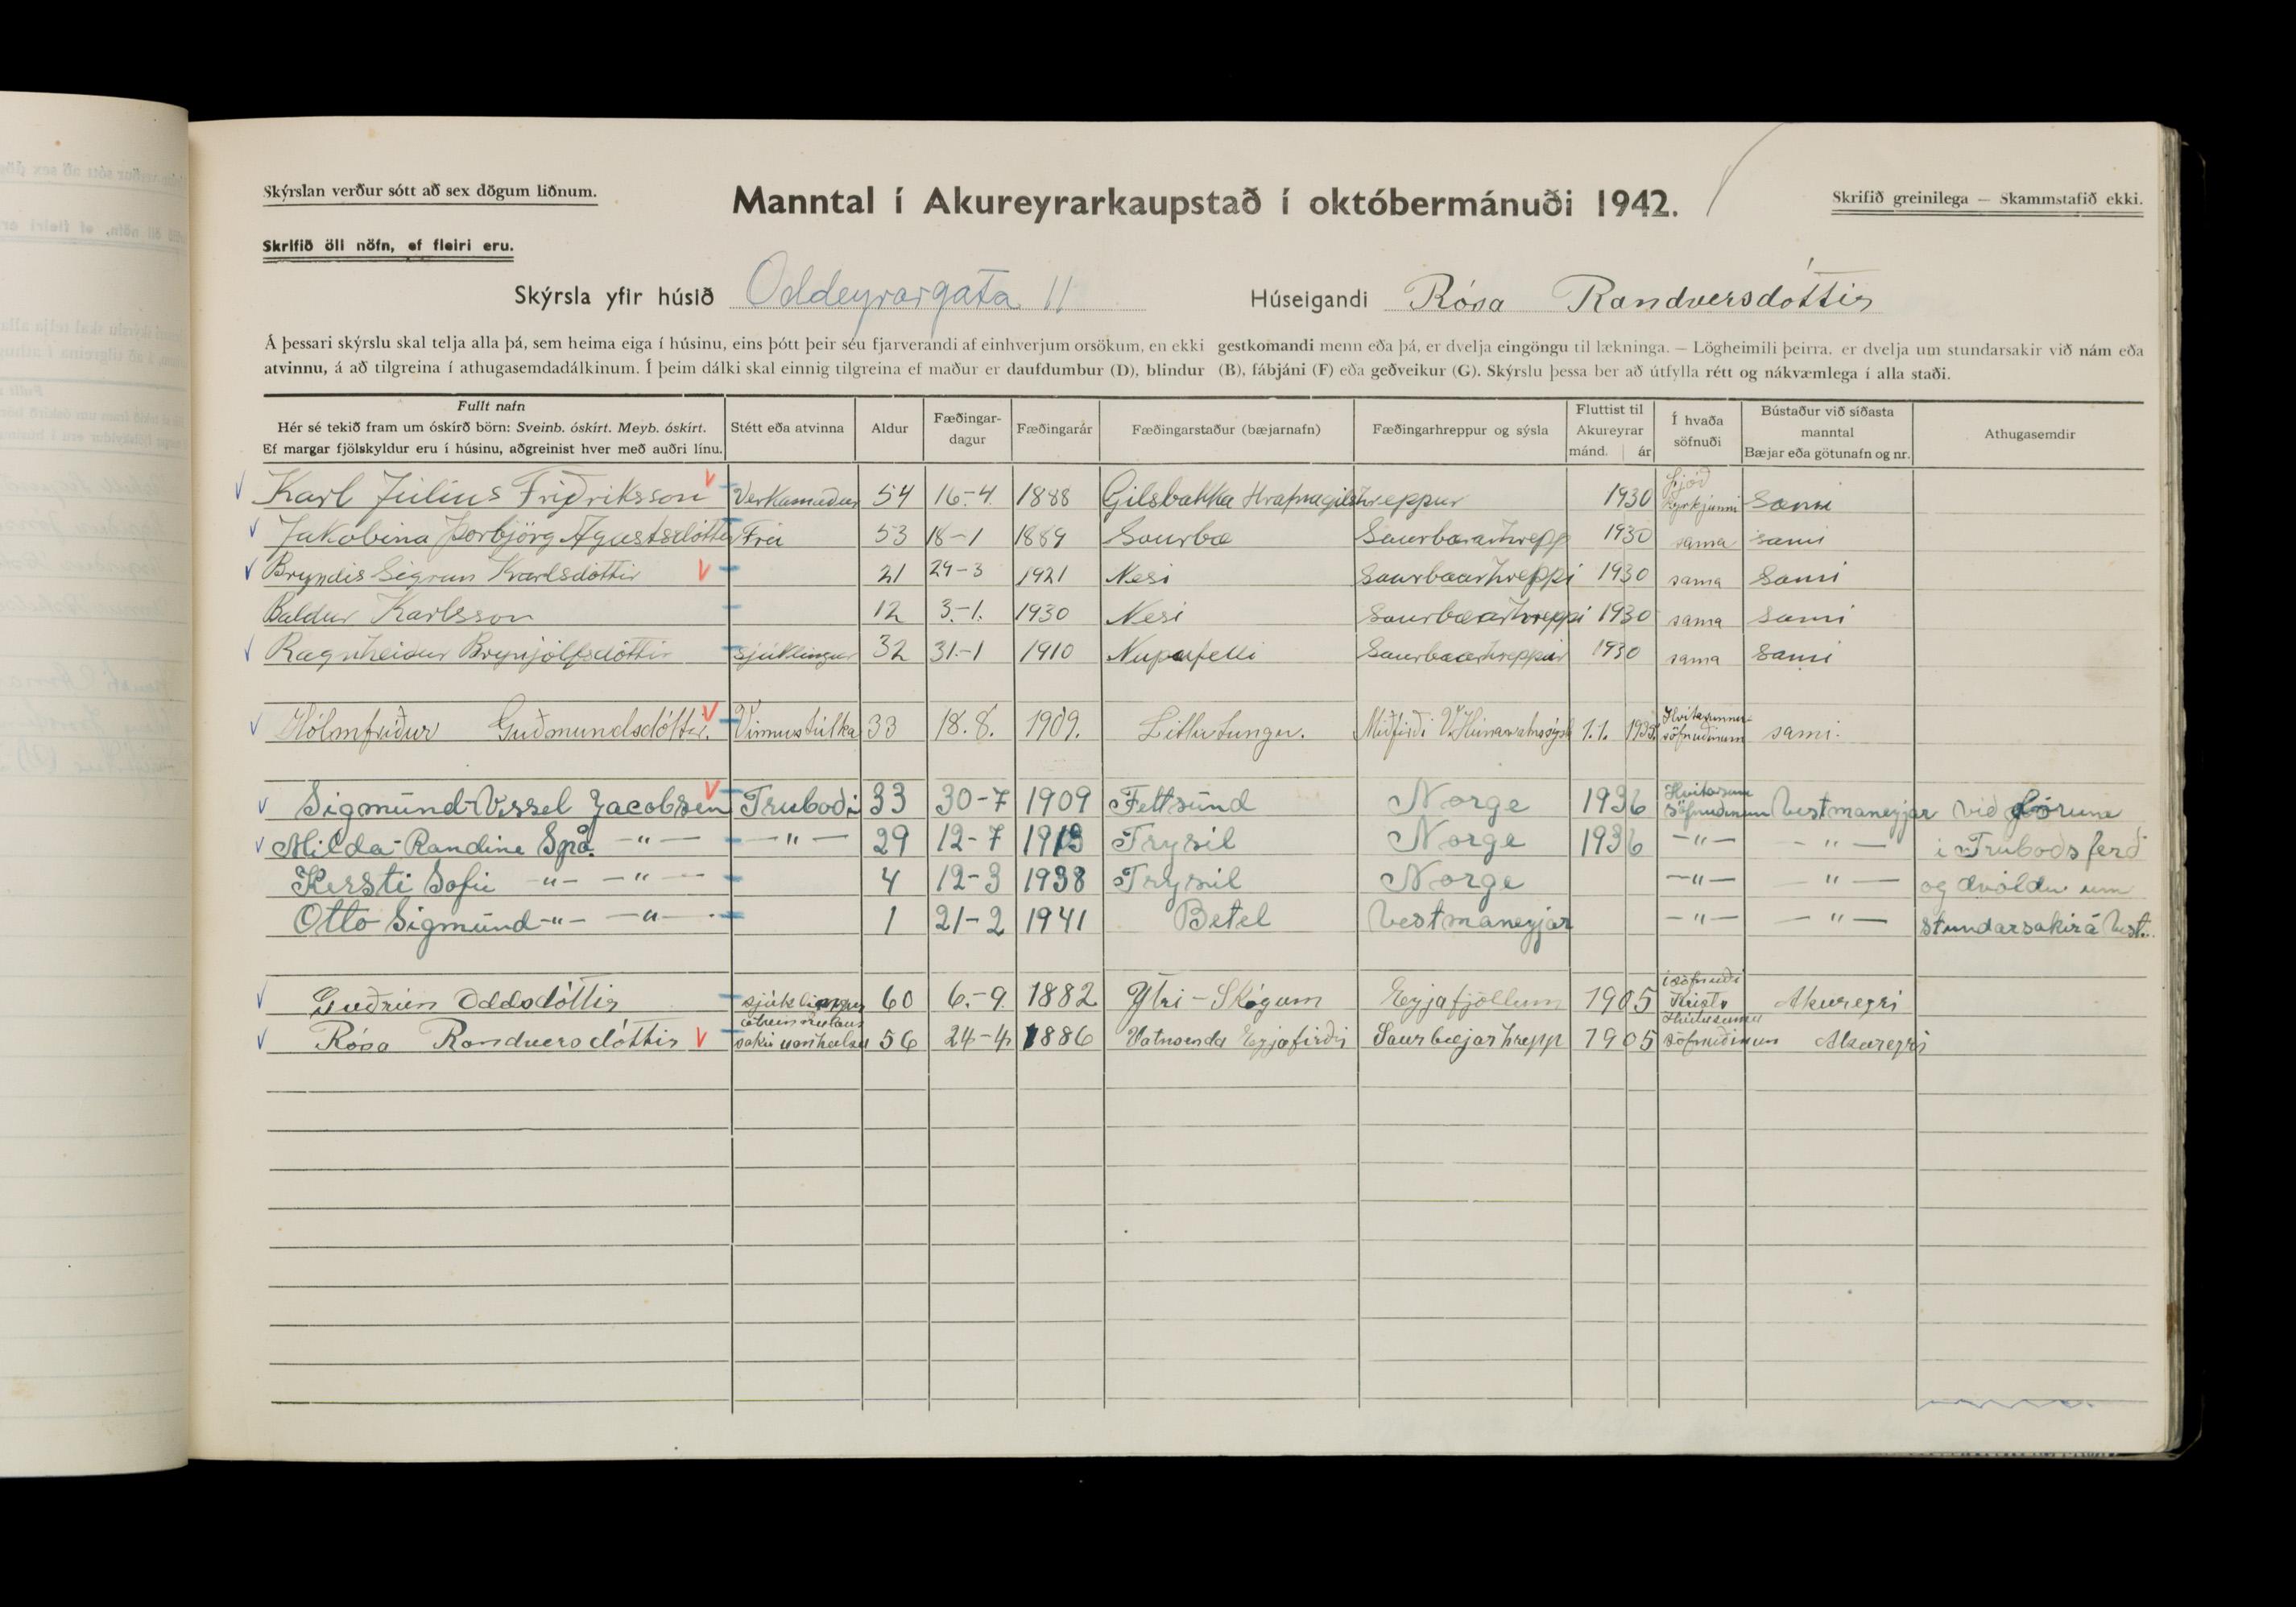 Skýrslan verður sótt að sex dögum liðnum.
Manntal í Akureyrarkaupstað í októbermánuði 1942.
Skrifið greinilega — Skammstafið ekki.
Skrifið öll nöfn, ef fleiri eru.
Skýrsla yfir húsið Oddeyrargata 11 Húseigandi Rósa Randversdóttir
Á þessari skýrslu skal telja alla þá, sem heima eiga í húsinu, eins þótt þeir séu fjarverandi af einhverjum orsökum, en ekki gestkomandi menn eða þá, er dvelja eingöngu til lækninga. — Lögheimili þeirra, er dvelja um stundarsakir við nám eða
atvinnu, á að tilgreina í athugasemdadálkinum. Í þeim dálki skal einnig tilgreina ef maður er daufdumbur (D), blindur (B), fábjáni (F) eða geðveikur (G). Skýrslu þessa ber að útfylla rétt og nákvæmlega í alla staði.
Fullt nafn
Hér sé tekið fram um óskírð börn: Sveinb. óskírt. Meyb. óskírt.
Ef margar fjölskyldur eru í húsinu, aðgreinist hver með auðri línu.
Stétt eða atvinna
Aldur
Fæðingar-
dagur
Fæðingarár
Fæðingarstaður (bæjarnafn)
Fæðingarhreppur og sýsla
Fluttist til
Akureyrar
mánd. ár
Í hvaða
söfnuði
Bústaður við síðasta
manntal
Bæjar eða götunafn og nr.
Athugasemdir
Karl Júlíus Friðriksson Verkamaður 54 16-4. 1888 Gilsbakka Hrafnagilshreppur 1930 Þjóðkyrkjunni Sami
Jakobina Þorbjörg Agustsdóttir Frú 53 18-1 1889 Saurbæ Saurbæarhrepp 1930 sama sami
Bryndis Sigrun Karlsdottir 21 24-3 1921 Nesi Saurbæarhreppi 1930 sama Sami
Baldur Karlsson 12 3-1. 1930 Nesi Saurbæarhreppi 1930 sama Sami
Ragnheidur Brynjólfsdóttir sjúklingur 32 31-1 1910 Nupufelli Saurbæarhreppur 1930 sama Sami
Hólmfríður Guðmundsdóttir. Vinnustúlka 33 18. 8. 1909. Litlu tungu. Miðfirði V. Húnavatnssýsl 1.1. Hvítasunnu-söfnuðinum sami.
Sigmund Jacobsen Truboði 33 30-7 1909 Fettsund Norge 1936 Hvitasunnu Söfnuðinum Vestmaneyjar Við fórum
Milda-Randine Språ. -"- -"- 29 12-7 1913 Trysil Norge 1936 -"- -"- i Truboðs ferð
Kersti Sofie -"- -"- 4 12-3 1938 Trysil Norge -"- -"- og dvöldu um
Otto Sigmund -"- -"- 1 21-2 1941 Betel Vestmaneyjar -"- -"- stundarsakir á Vest.
Guðrún Oddsdóttir sjúklingur 60 6.-9. 1882 Ytri-Skógum Eyjafjöllum 1905 i söfnuði Kristo Akureyri
Rósa Randversdóttir atvinnulaus sakir vanheilsu 56 24-4 1886 Vatnsenda Eyjafirði Saurbæjarhrepp 1905 Hvítasunnu söfnuðinum Akureyri